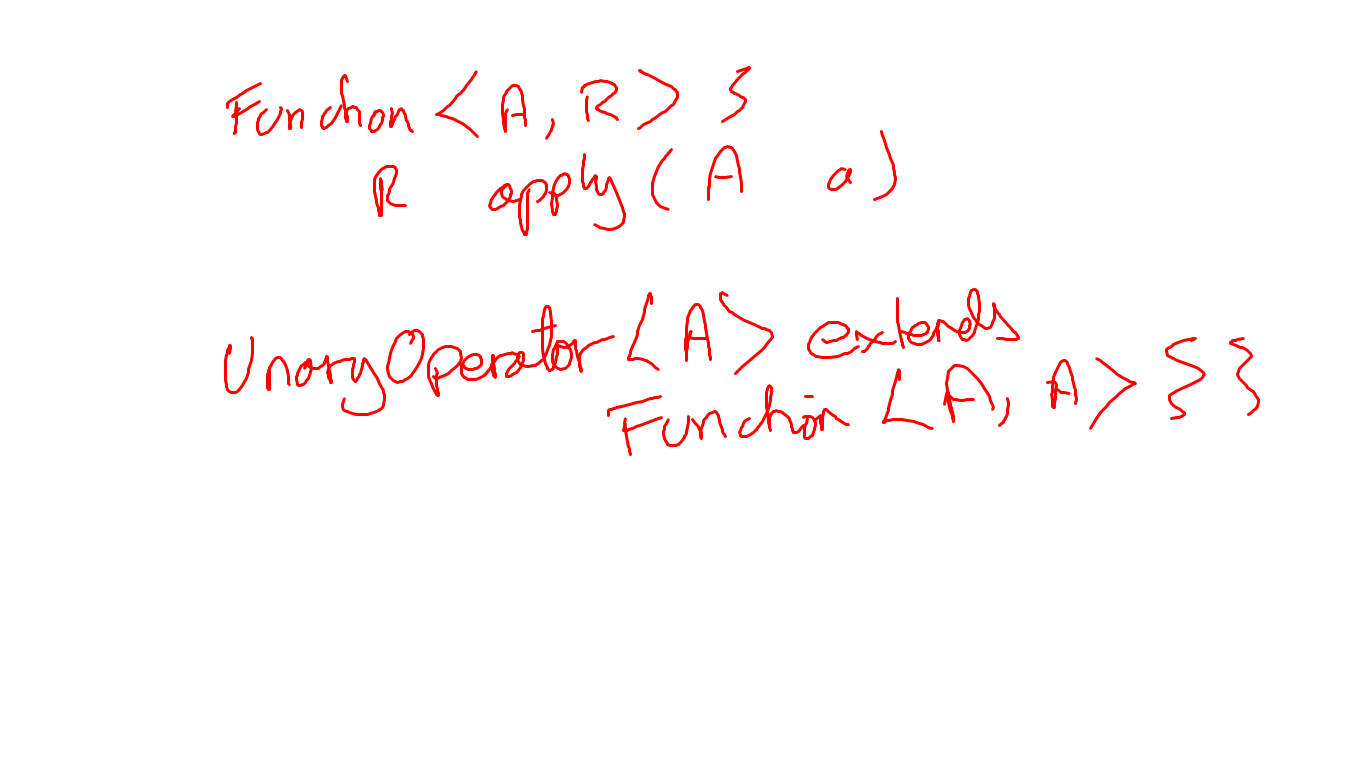 Function <A, R> {
R apply (A a)
UnaryOperator <A> extends
Function <A, A> { }